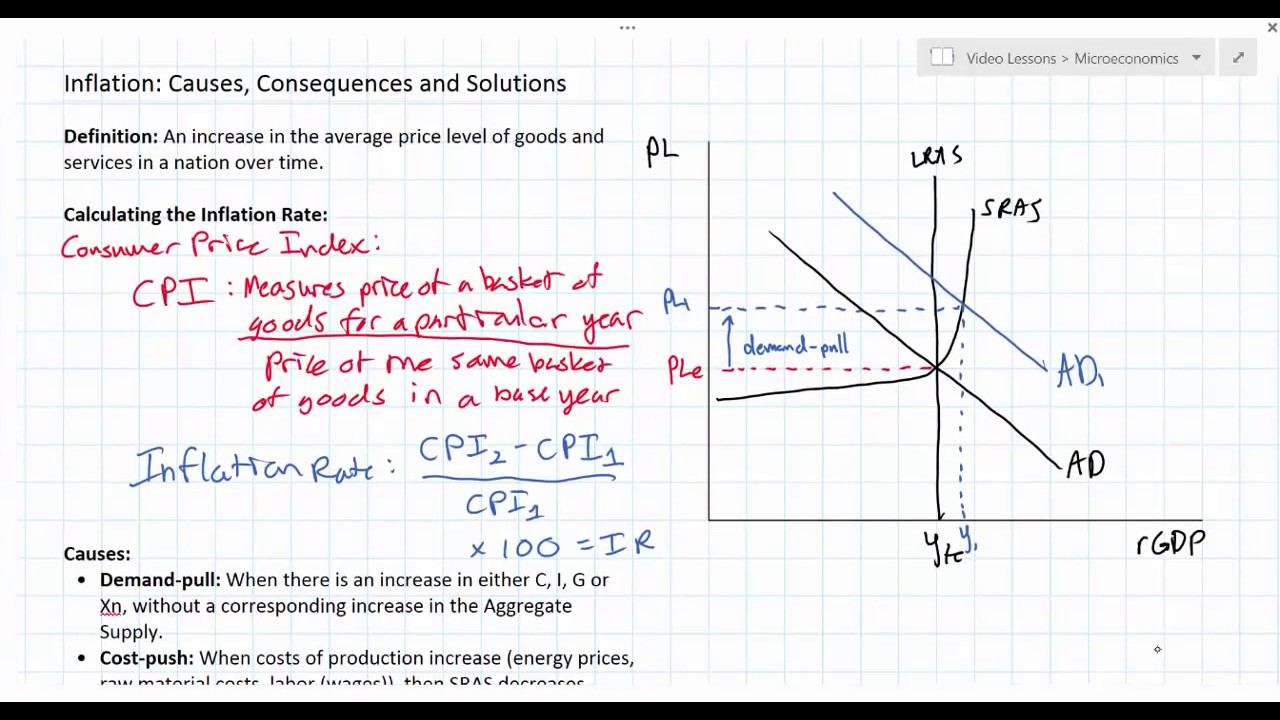 Video Lessons > Microeconomics
Inflation: Causes, Consequences and Solutions
Definition: An increase in the average price level of goods and
services in a nation over time.
Calculating the Inflation Rate:
Consumer Price Index:
CPI : Measures price of a basket of
goods for a particular year
Price of the same basket
of goods in a base year
Inflation Rate: CPI₂ - CPI₁
CPI₁
x 100 = IR
Causes:
• Demand-pull: When there is an increase in either C, I, G or
Xn, without a corresponding increase in the Aggregate
Supply.
• Cost-push: When costs of production increase (energy prices,
raw material costs, labor (wages)), then SRAS decreases
PL
LRAS
SRAS
PL₁
demand-pull
PLe
AD₁
AD
Yfe
Y₁
rGDP